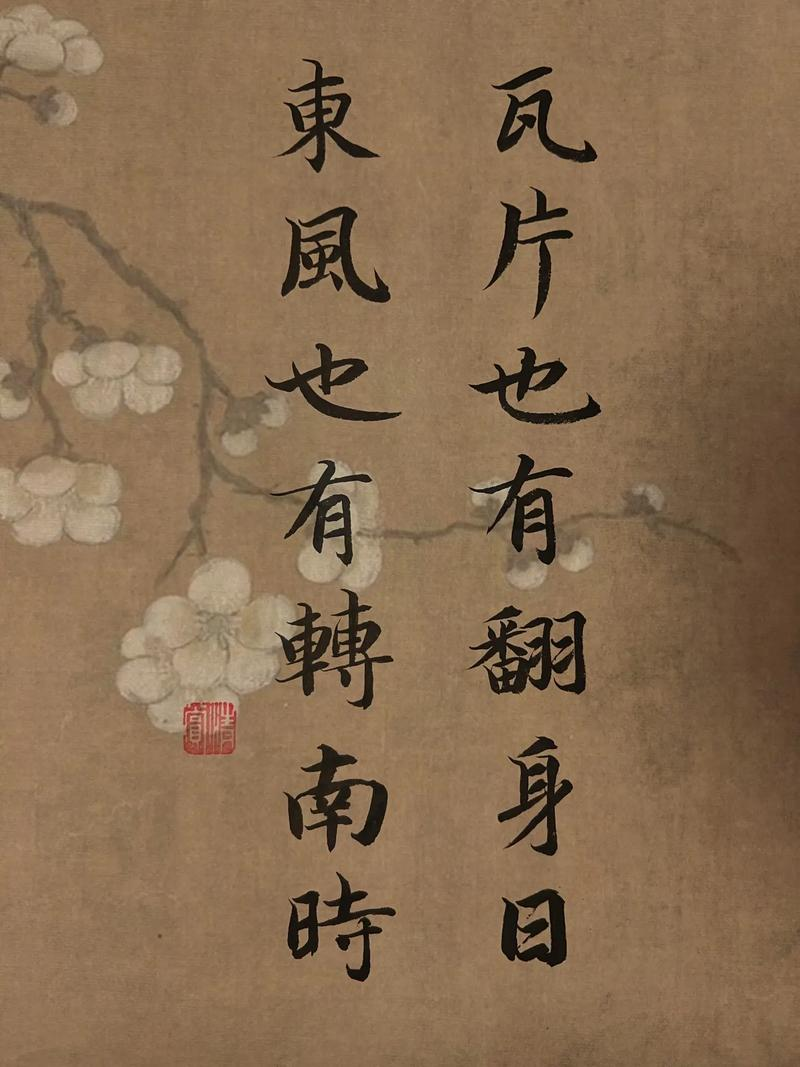 瓦片也有翻身日
東風也有轉南時
清賞